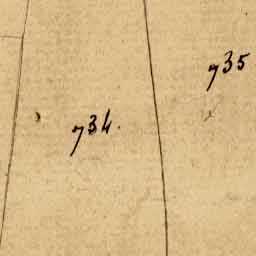 735
734.